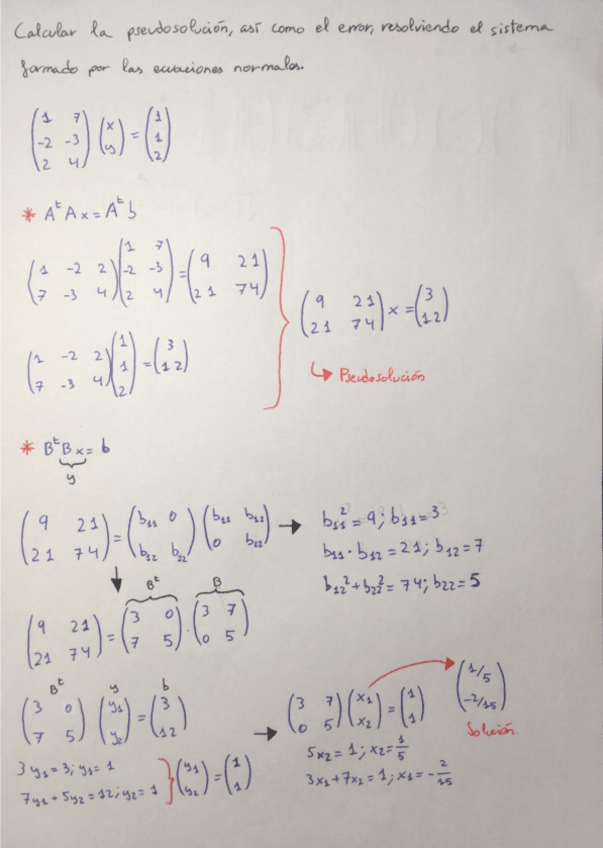 Calcular la pseudosolución, así como el error, resolviendo el sistema
formado por las ecuaciones normales.
(1 7; -2 -3; 2 4) (x; y) = (1; 1; 2)
* AᵗAx = Aᵗb
(1 -2 2; 7 -3 4) (1 7; -2 -3; 2 4) = (9 21; 21 74)
(1 -2 2; 7 -3 4) (1; 1; 2) = (3; 12)
(9 21; 21 74) x = (3; 12)
↳ Pseudosolución
* BᵗBx = b
y
(9 21; 21 74) = (b₁₁ 0; b₁₂ b₂₂) (b₁₁ b₁₂; 0 b₂₂) →
b₁₁² = 9; b₁₁ = 3
b₁₁ · b₁₂ = 21; b₁₂ = 7
b₁₂² + b₂₂² = 74; b₂₂ = 5
Bᵗ B
(9 21; 21 74) = (3 0; 7 5) · (3 7; 0 5)
Bᵗ y b
(3 0; 7 5) (y₁; y₂) = (3; 12)
3y₁ = 3; y₁ = 1
7y₁ + 5y₂ = 12; y₂ = 1
(y₁; y₂) = (1; 1)
→ (3 7; 0 5) (x₁; x₂) = (1; 1)
5x₂ = 1; x₂ = 1/5
3x₁ + 7x₂ = 1; x₁ = -2/15
(1/5; -2/15)
Solución.